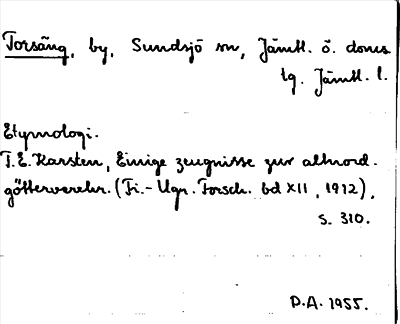 Torsäng, by, Sundsjö sn, Jämtl. ö. doms
tg. Jämtl. l.
Etymologi.
T.E. Karsten, Einige zeugnisse zur altnord.
götterverehr. (Fi.-Ugr. Forsch. bd XII, 1912),
s. 310.
P.A. 1955.